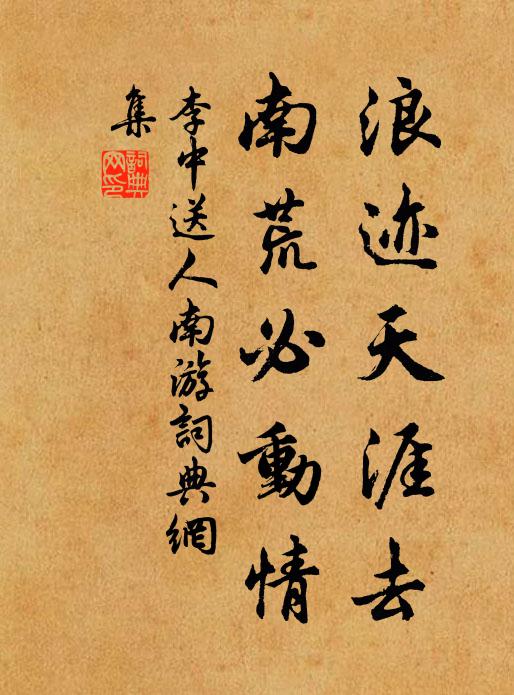 浪迹天涯去
南荒必動情
李中送人南游詞典網
集
詞典
网印